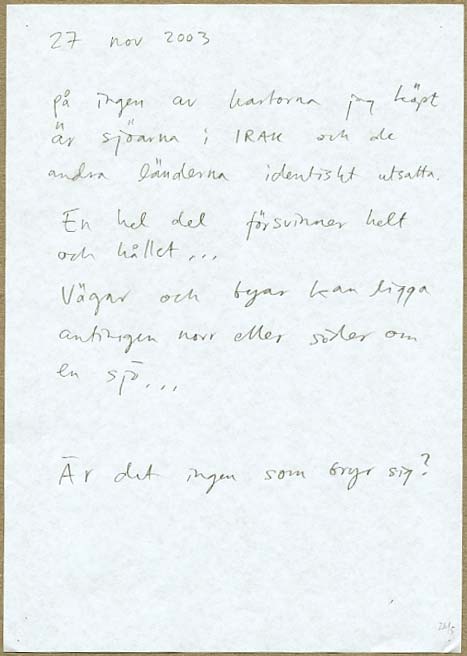 27 nov 2003
på ingen av kartorna jag köpt
är sjöarna i IRAK och de
andra länderna identiskt utsatta.
En hel del försvinner helt
och hållet...
Vägar och byar kan ligga
antingen norr eller söder om
en sjö...
Är det ingen som bryr sig?